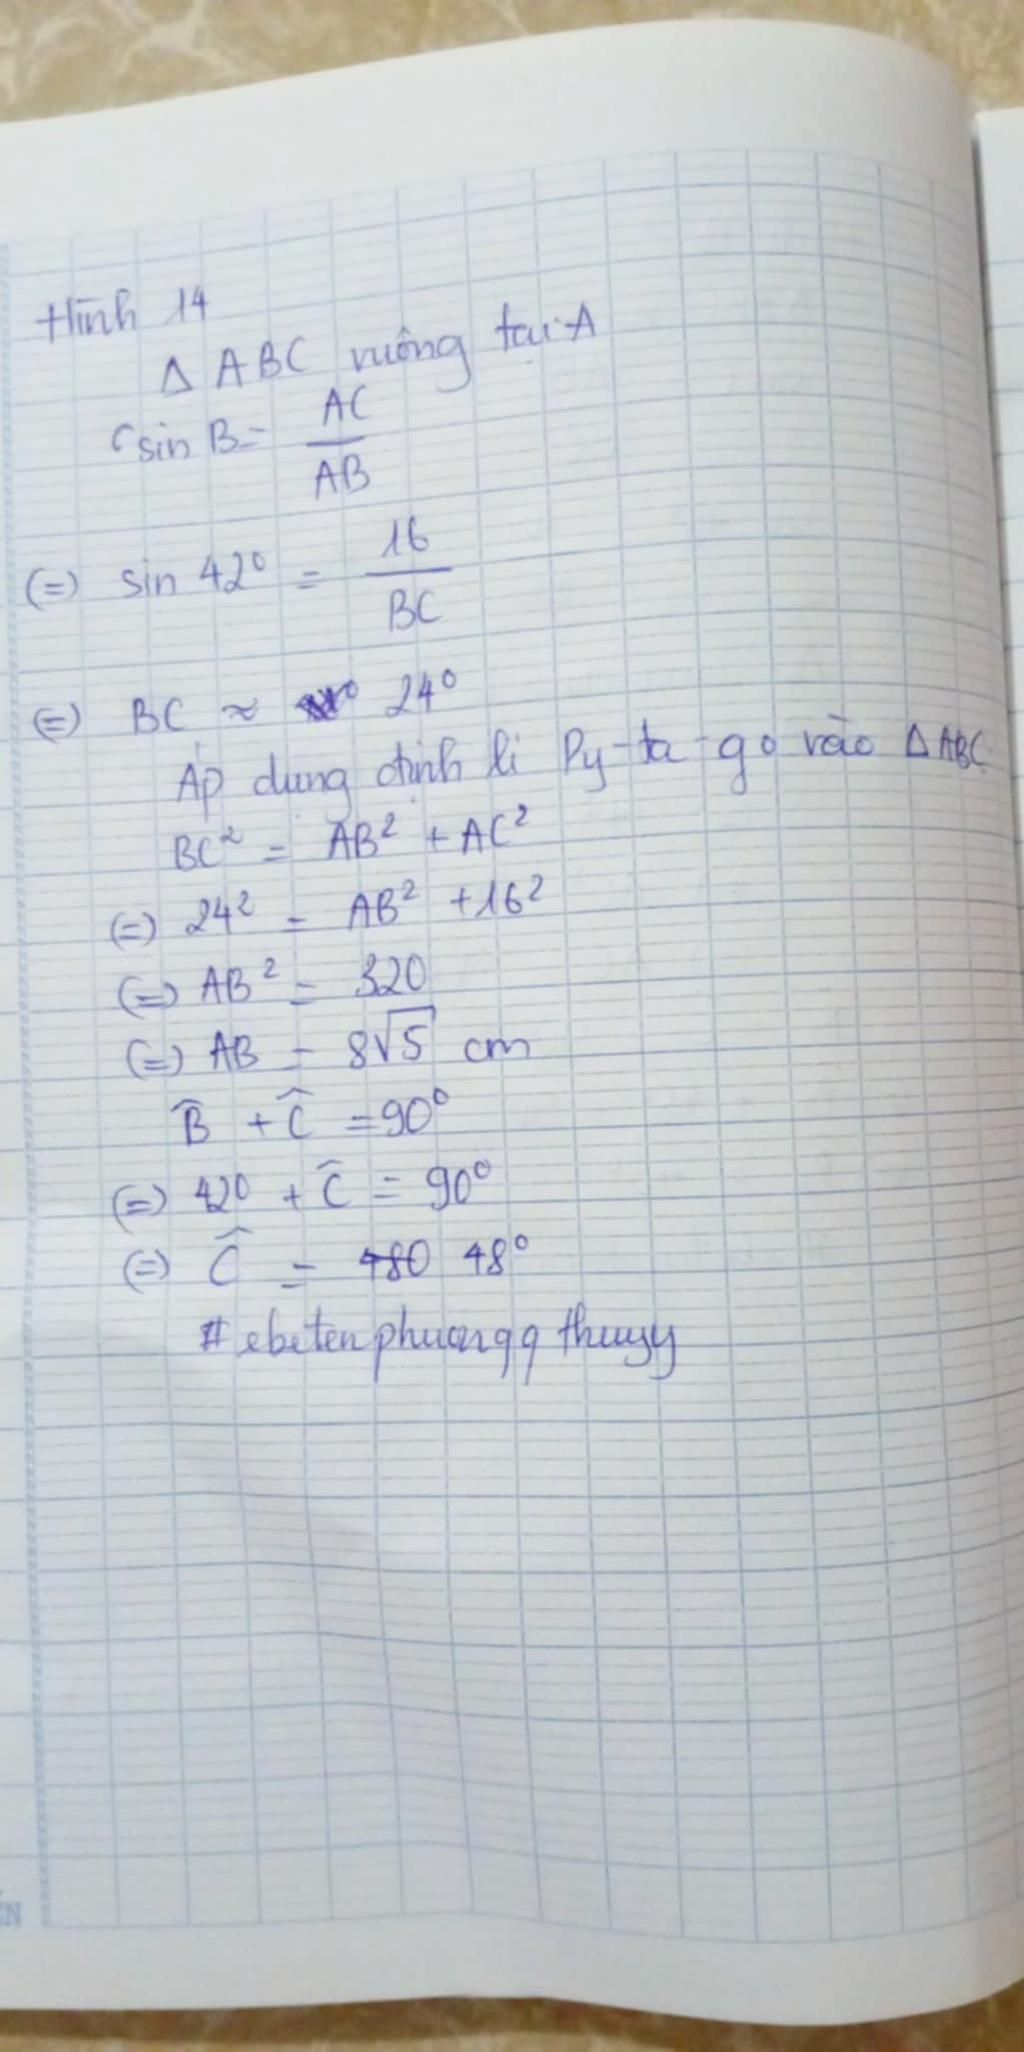 Hình 14
Δ ABC vuông tại A
sin B = AC / AB
(=) sin 42° = 16 / BC
(=) BC ≈ 24°
Áp dung định lí Py-ta-go vào Δ ABC
BC² = AB² + AC²
(=) 24² = AB² + 16²
(=) AB² = 320
(=) AB = 8√5 cm
B̂ + Ĉ = 90°
(=) 42° + Ĉ = 90°
(=) Ĉ = 480 48°
# ebetenphuongqq thuyy